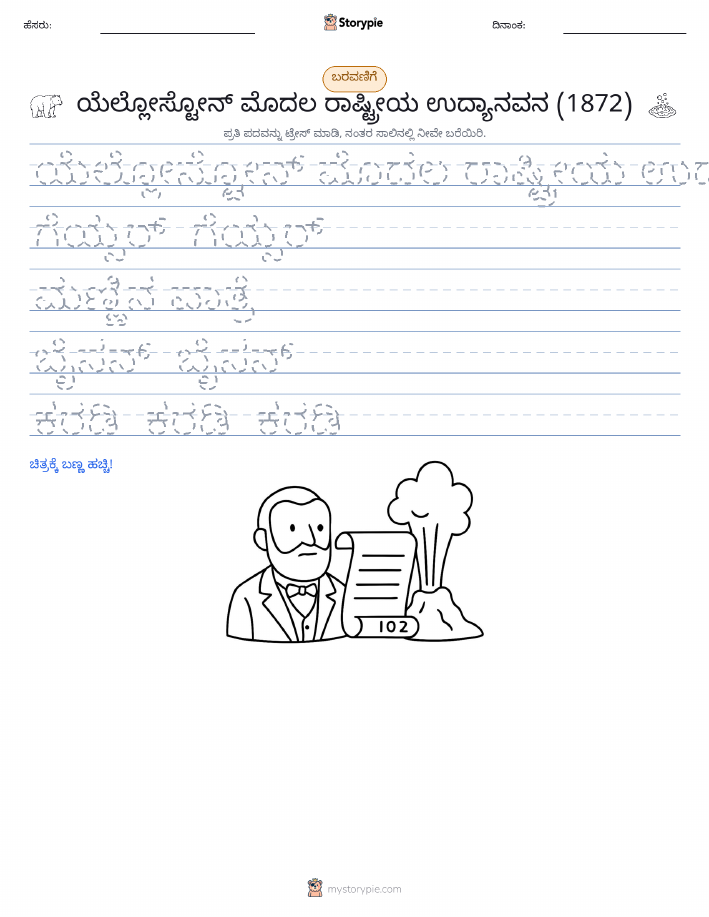 ಹೆಸರು: Storypie ದಿನಾಂಕ:
ಬರವಣಿಗೆ
ಯೆಲ್ಲೋಸ್ಟೋನ್ ಮೊದಲ ರಾಷ್ಟ್ರೀಯ ಉದ್ಯಾನವನ (1872)
ಪ್ರತಿ ಪದವನ್ನು ಟ್ರೇಸ್ ಮಾಡಿ, ನಂತರ ಸಾಲಿನಲ್ಲಿ ನೀವೇ ಬರೆಯಿರಿ.
ಯೆಲ್ಲೋಸ್ಟೋನ್ ಮೊದಲ ರಾಷ್ಟ್ರೀಯ
ಗೆಯ್ಸರ್ ಗೆಯ್ಸರ್
ಮಣ್ಣಿನ ಪಾತ್ರೆ
ಬೈಸನ್ ಬೈಸನ್
ಕರಡಿ ಕರಡಿ ಕರಡಿ
ಚಿತ್ರಕ್ಕೆ ಬಣ್ಣ ಹಚ್ಚಿ!
102
mystorypie.com